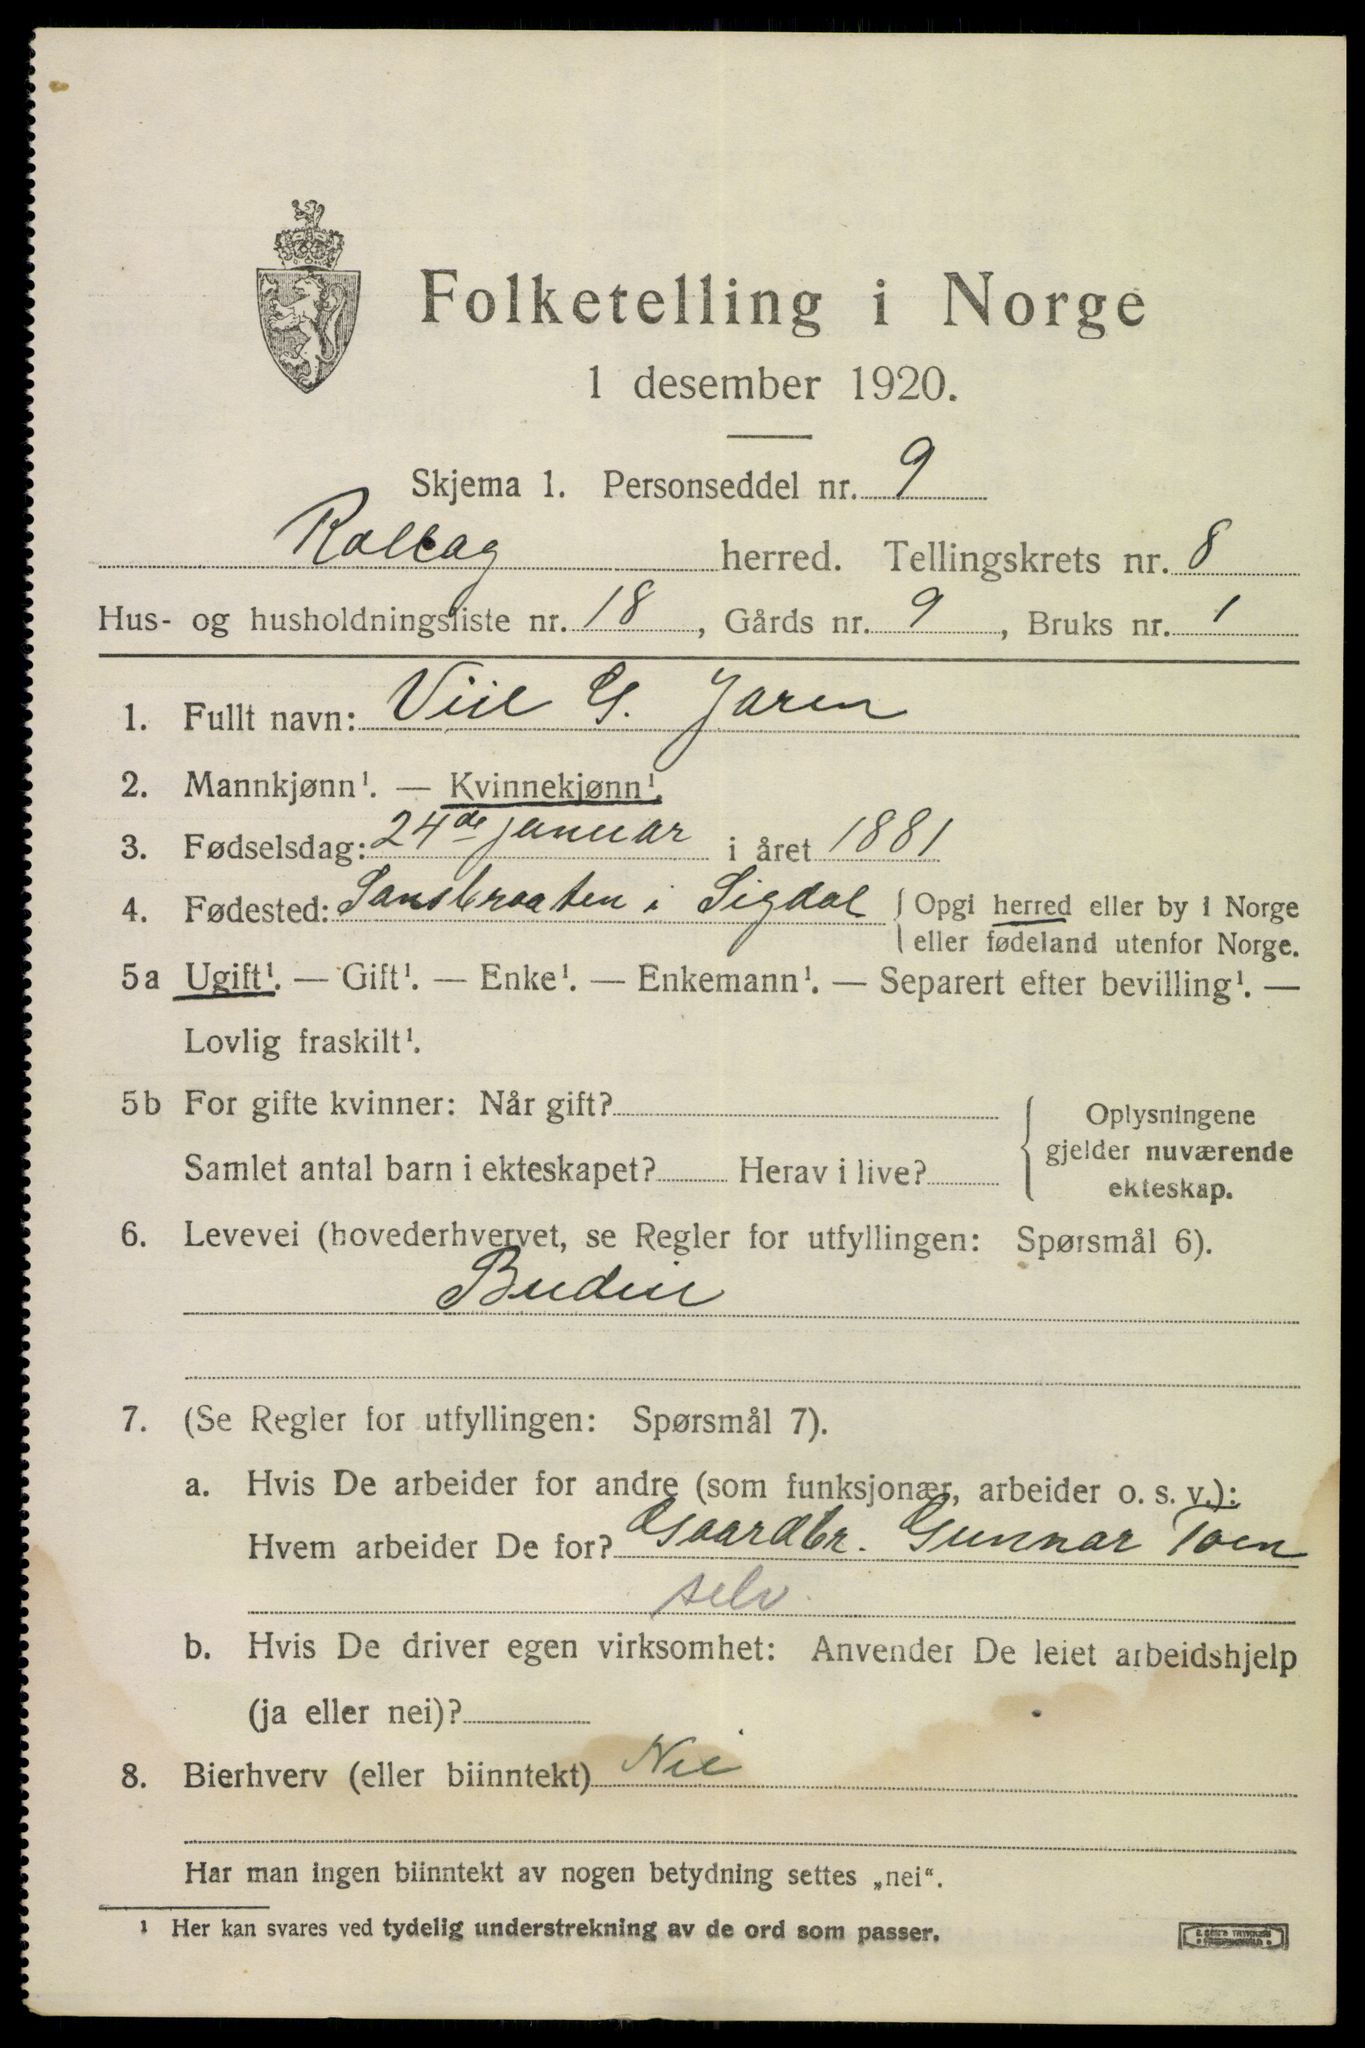 Folketelling i Norge
1 desember 1920.
Skjema 1. Personseddel nr. 9
Rollag herred. Tellingskrets nr. 8
Hus- og husholdningsliste nr. 18, Gårds nr. 9, Bruks nr. 1
1. Fullt navn: G. Jaren
2. Mannkjønn¹. — Kvinnekjønn¹.
3. Fødselsdag: 24de januar i året 1881
4. Fødested: i Sigdal { Opgi herred eller by i Norge
eller fødeland utenfor Norge.
5a Ugift¹. — Gift¹. — Enke¹. — Enkemann¹. — Separert efter bevilling¹. —
Lovlig fraskilt¹.
5b For gifte kvinner: Når gift? { Oplysningene
gjelder nuværende
Samlet antal barn i ekteskapet? Herav i live?
ekteskap.
6. Levevei (hovederhvervet, se Regler for utfyllingen: Spørsmål 6).
Budeie
7. (Se Regler for utfyllingen: Spørsmål 7).
a. Hvis De arbeider for andre (som funksjonær, arbeider o. s. v.):
Hvem arbeider De for? Gaardbr. Gunnar Toen
selv
b. Hvis De driver egen virksomhet: Anvender De leiet arbeidshjelp
(ja eller nei)?
8. Bierhverv (eller biinntekt) Nei
Har man ingen biinntekt av nogen betydning settes „nei“.
¹ Her kan svares ved tydelig understrekning av de ord som passer.